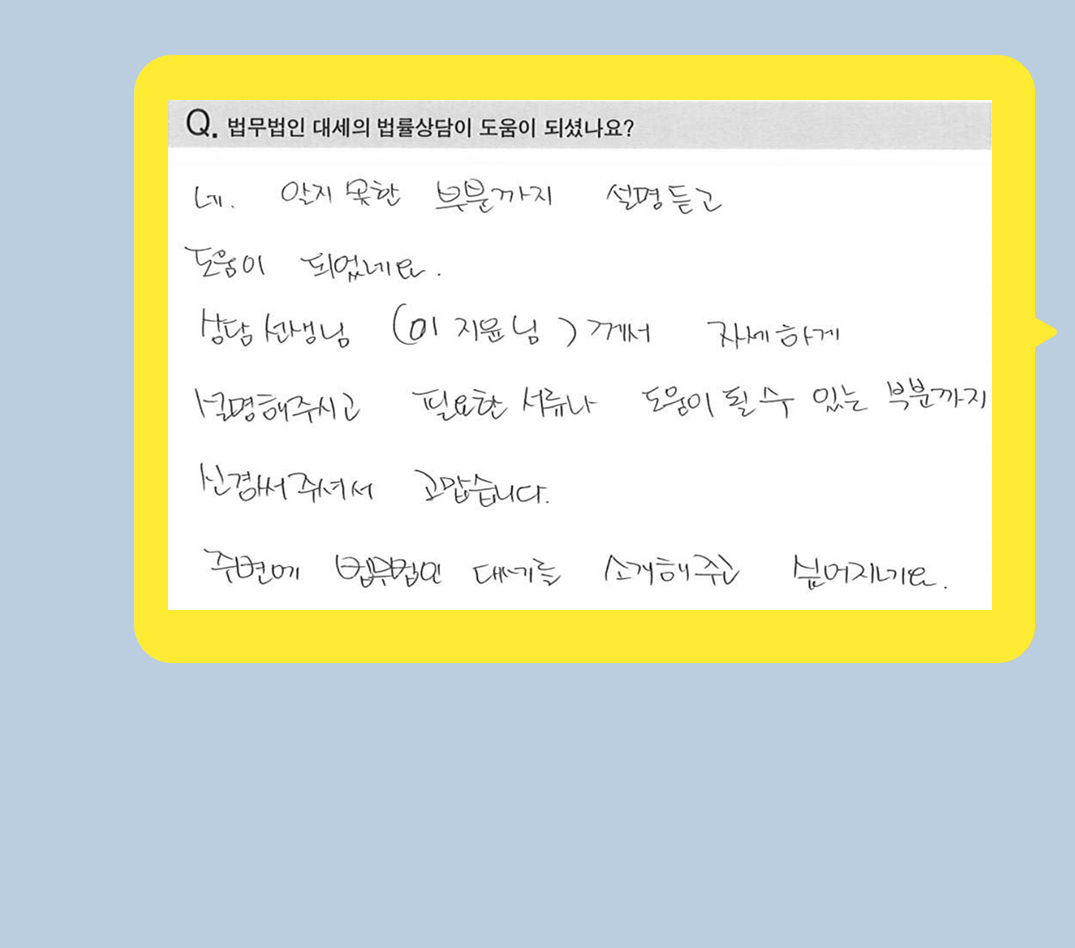 Q. 법무법인 대세의 법률상담이 도움이 되셨나요?
네. 알지 못한 부분까지 설명듣고
도움이 되었네요.
상담선생님 (이지윤님)께서 자세하게
설명해주시고 필요한 서류나 도움이 될 수 있는 부분까지
신경써주셔서 고맙습니다.
주변에 법무법인 대세를 소개해주고 싶어지네요.